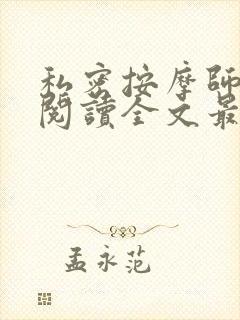 私密按摩師
閱讀全文最
孟永范